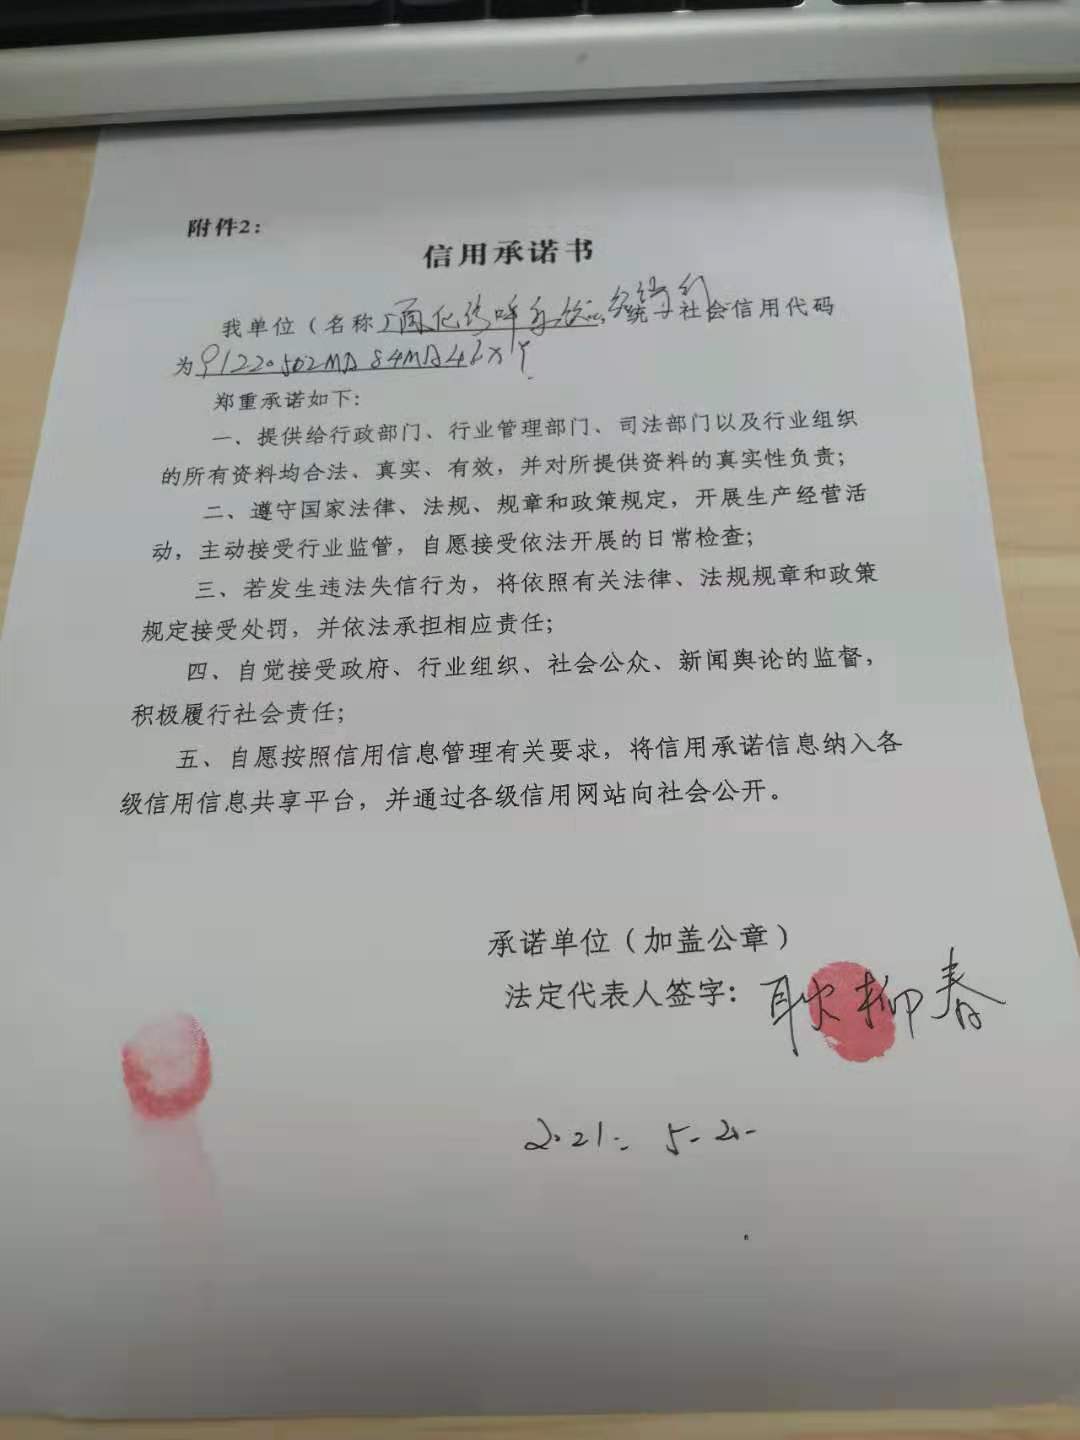 附件2:
信用承诺书
我单位（名称 社会信用代码
为
郑重承诺如下:
一、提供给行政部门、行业管理部门、司法部门以及行业组织
的所有资料均合法、真实、有效，并对所提供资料的真实性负责；
二、遵守国家法律、法规、规章和政策规定，开展生产经营活
动，主动接受行业监管，自愿接受依法开展的日常检查；
三、若发生违法失信行为，将依照有关法律、法规规章和政策
规定接受处罚，并依法承担相应责任；
四、自觉接受政府、行业组织、社会公众、新闻舆论的监督，
积极履行社会责任；
五、自愿按照信用信息管理有关要求，将信用承诺信息纳入各
级信用信息共享平台，并通过各级信用网站向社会公开。
承诺单位（加盖公章）
法定代表人签字: 耿柳春
2021. 5-20-